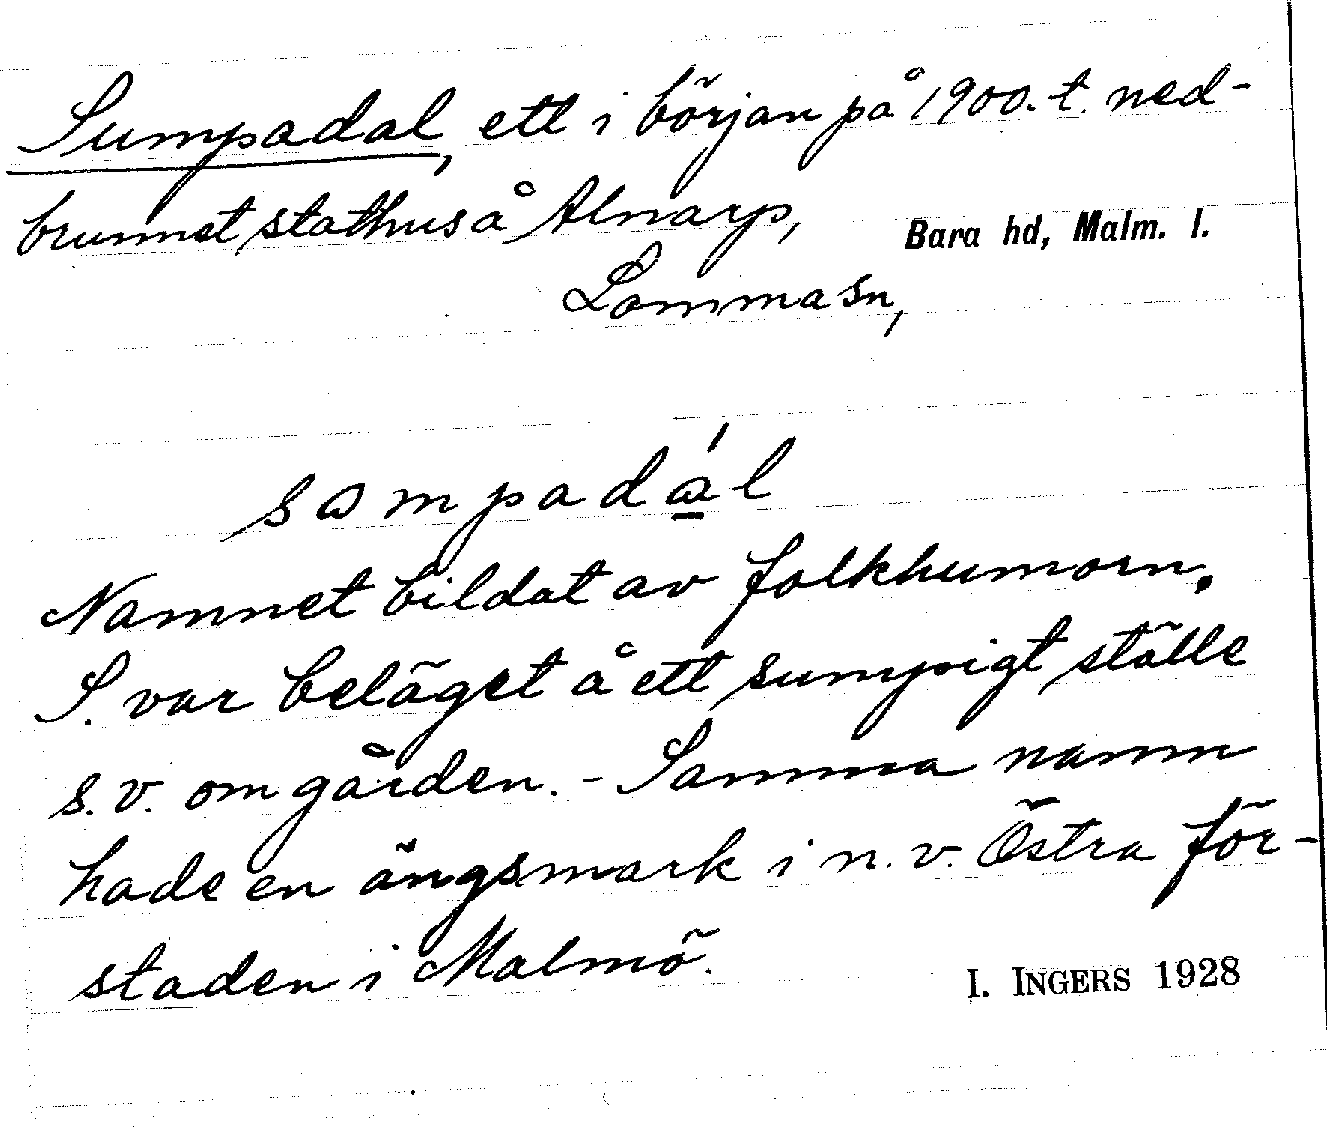 Sumpadal, ett i början på 1900-t. ned-
brunnet stathus å Alnarp,
Bara hd, Malm. l.
Lomma sn,
sɷmpadál
Namnet bildat av folkhumorn.
S. var beläget å ett sumpigt ställe
s.v. om gården. - Samma namn
hade en ängsmark i n.v. Östra för-
staden i Malmö.
I. INGERS 1928